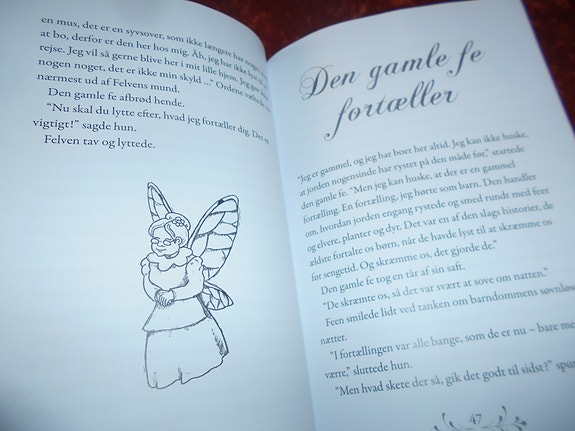 en mus, det er en syvsover, som ikke længere har nogen
at bo, derfor er den her hos mig. Åh, jeg har ikke lyst
rejse. Jeg vil så gerne blive her i mit lille hjem. Jeg
nogen noget, det er ikke min skyld ..." Ordene væltede
nærmest ud af Felvens mund.
Den gamle fe afbrød hende.
"Nu skal du lytte efter, hvad jeg fortæller dig. Det er
vigtigt!" sagde hun.
Felven tav og lyttede.
Den gamle fe
fortæller
"Jeg er gammel, og jeg har boet her altid. Jeg kan ikke huske,
at jorden nogensinde har rystet på den måde før," startede
den gamle fe. "Men jeg kan huske, at der er en gammel
fortælling. En fortælling, jeg hørte som barn. Den handler
om, hvordan jorden engang rystede og smed rundt med feer
og elvere, planter og dyr. Det var en af den slags historier, de
ældste fortalte os børn, når de havde lyst til at skræmme os
før sengetid. Og skræmme os, det gjorde de."
Den gamle fe tog en tår af sin saft.
"De skræmte os, så det var svært at sove om natten."
Feen smilede lidt ved tanken om barndommens søvnløse
nætter.
"I fortællingen var alle bange, som de er nu – bare me
værre," sluttede hun.
"Men hvad skete der så, gik det godt til sidst?" spur
47